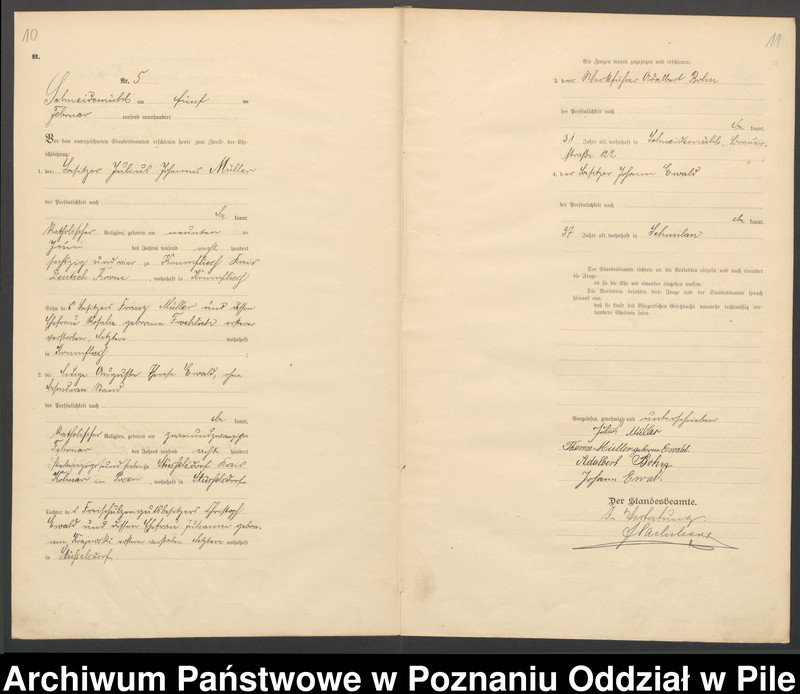 10
B.
Nr. 5
Schneidemühl am fünf ten
Februar tausend neunhundert
Vor dem unterzeichneten Standesbeamten erschienen heute zum Zwecke der Ehe-
schließung:
1. der Besitzer Julius Johannes Müller
der Persönlichkeit nach
be kannt,
katholischer Religion, geboren am neunten ten
Juni des Jahres tausend acht hundert
sechzig und vier zu Krummfließ Kreis
Deutsch Krone, wohnhaft in Krummfließ
Sohn des Besitzers Franz Müller und dessen
Ehefrau Rosalie geborene ersterer
verstorben, letztere wohnhaft
in Krummfließ
2. die ledige Auguste Therese Ewald, ohne
besonderen Stand
der Persönlichkeit nach
be kannt,
katholischer Religion, geboren am zweiundzwanzigsten
Februar des Jahres tausend acht hundert
siebenzig und sieben zu Stüsselsdorf Kreis
Kolmar in Posen, wohnhaft in Stüsselsdorf
Tochter des Freischulzengutsbesitzers Christoph
Ewald und dessen Ehefrau Julianna gebore-
nen ersterer verstorben letztere wohnhaft
in Stüsselsdorf
11
Als Zeugen waren zugezogen und erschienen:
3. der Werkführer Adalbert Bohm
der Persönlichkeit nach
be kannt,
31 Jahre alt, wohnhaft in Schneidemühl, Brauer-
straße
4. der Besitzer Johann Ewald
der Persönlichkeit nach
be kannt,
37 Jahre alt, wohnhaft in Schmilau
Der Standesbeamte richtete an die Verlobten einzeln und nach einander
die Frage:
ob sie die Ehe mit einander eingehen wollen.
Die Verlobten bejahten diese Frage und der Standesbeamte sprach
hierauf aus,
daß sie kraft des Bürgerlichen Gesetzbuchs nunmehr rechtmäßig ver-
bundene Eheleute seien.
Vorgelesen, genehmigt und unterschrieben
Julius Müller
Therese Müller geborene Ewald.
Adalbert Bohm
Johann Ewald.
Der Standesbeamte.
In Vertretung.
Archiwum Państwowe w Poznaniu Oddział w Pile